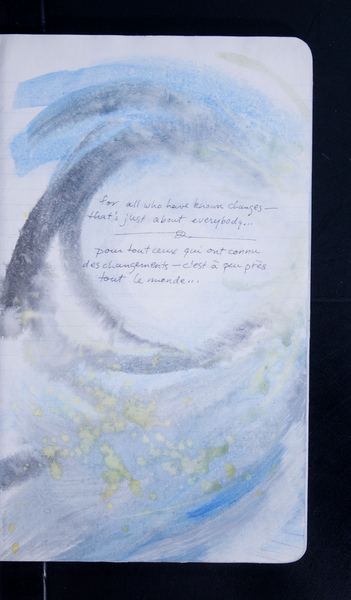 for all who have known changes—
that's just about everybody...
pour tout ceux qui ont connu
des changements – c'est à peu près
tout le monde...